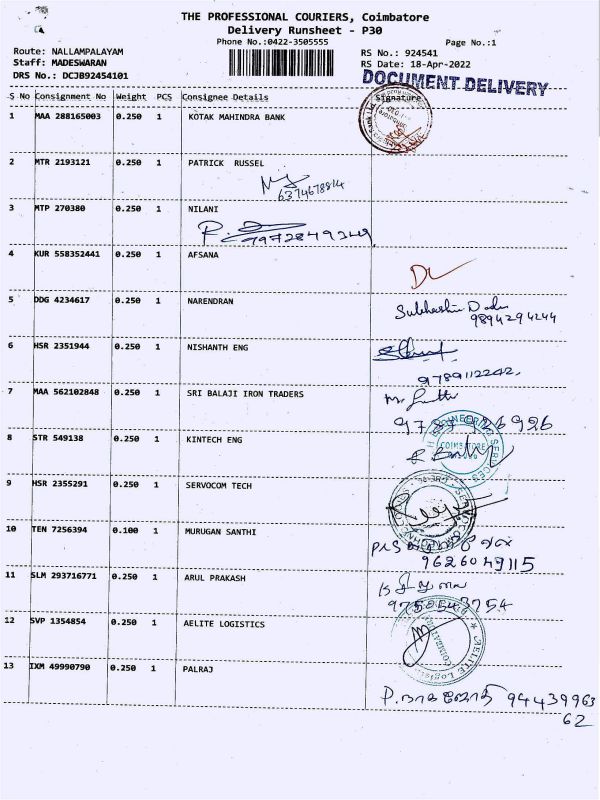 THE PROFESSIONAL COURIERS, Coimbatore
Delivery Runsheet - P30
Phone No.:0422-3505555
Page No.:1
Route: NALLAMPALAYAM
RS No.: 924541
Staff: MADESWARAN
RS Date: 18-Apr-2022
DRS No.: DCJB92454101
DOCUMENT DELIVERY
S No Consignment No Weight PCS Consignee Details Signature
1 MAA 288165003 0.250 1 KOTAK MAHINDRA BANK
2 MTR 2193121 0.250 1 PATRICK RUSSEL
6374678814
3 MTP 270380 0.250 1 NILANI
4 KUR 558352441 0.250 1 AFSANA
5 DDG 4234617 0.250 1 NARENDRAN
9894294244
6 HSR 2351944 0.250 1 NISHANTH ENG
9789112242
7 MAA 562102848 0.250 1 SRI BALAJI IRON TRADERS
8 STR 549138 0.250 1 KINTECH ENG
COIMBATORE
9 HSR 2355291 0.250 1 SERVOCOM TECH
10 TEN 7256394 0.100 1 MURUGAN SANTHI
9626049115
11 SLM 293716771 0.250 1 ARUL PRAKASH
12 SVP 1354854 0.250 1 AELITE LOGISTICS
13 IXM 49990790 0.250 1 PALRAJ
94439963
62